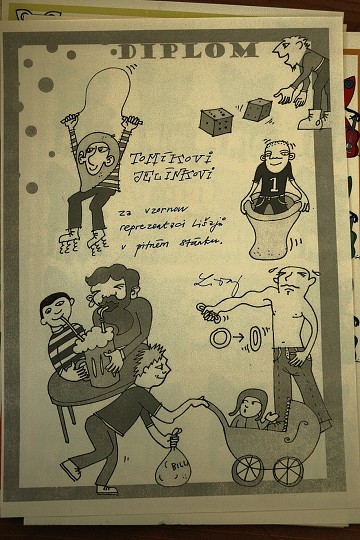 DIPLOM
TOMÍKOVI
JELÍNKOVI
za vzornou
reprezentaci Lišajů
v pitném stánku.
1
BILL